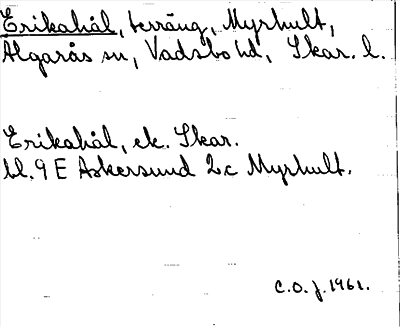 Erikahål, terräng, Myrhult,
Älgarås sn, Vadsbo hd, Skar. l.
Erikahål, ek. Skar.
bl. 9 E Askersund 2c Myrhult.
C.O.J. 1961.